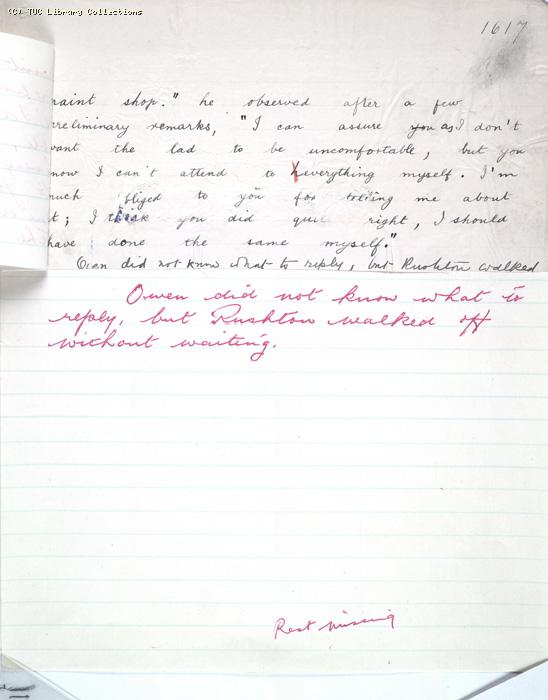 (C) TUC Library Collections
1617
paint shop." he observed after a few
preliminary remarks, "I can assure you as I don't
want the lad to be uncomfortable, but you
know I can't attend to everything myself. I'm
much obliged to you for telling me about
it; I think you did quite right, I should
have done the same myself."
Owen did not know what to reply, but Rushton walked
Owen did not know what to
reply, but Rushton walked off
without waiting.
Rest missing